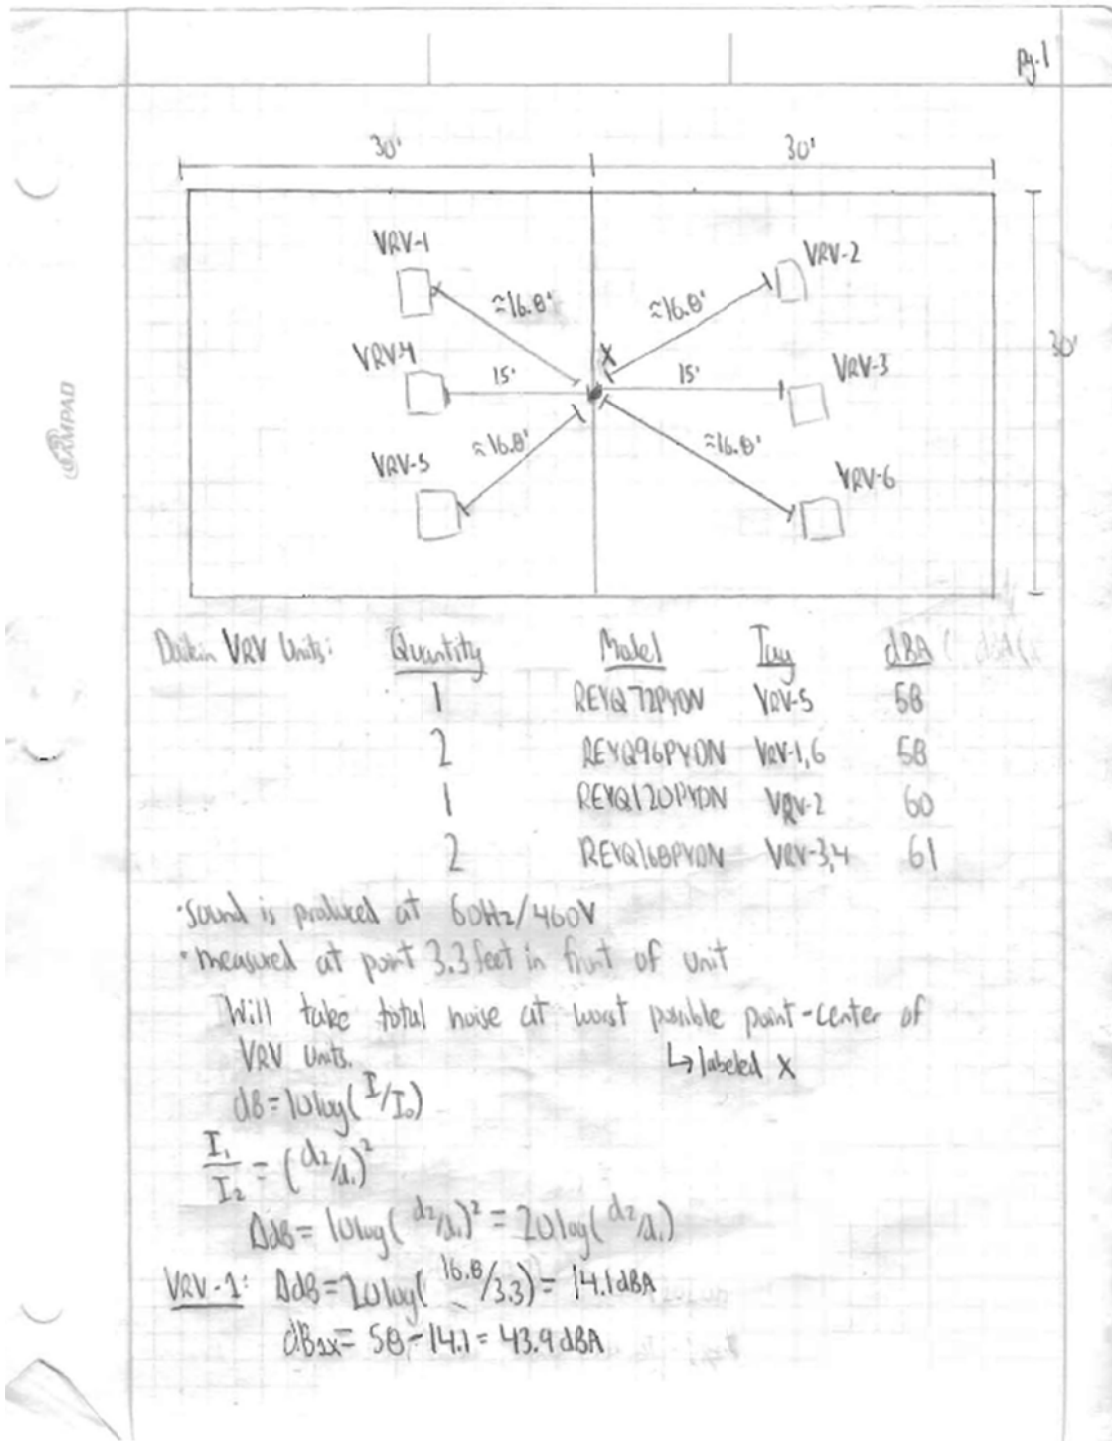 pg.1
30' 30'
VRV-1 VRV-2
≈16.8' ≈16.8'
X
30'
VRV-4 VRV-3
15' 15'
≈16.8' ≈16.8'
VRV-5 VRV-6
AMPAD
Daikin VRV Units: Quantity Model Tag dBA
1 REYQ72PYDN VRV-5 58
2 REYQ96PYDN VRV-1,6 58
1 REYQ120PYDN VRV-2 60
2 REYQ168PYDN VRV-3,4 61
•sound is produced at 60Hz/460V
•measured at point 3.3 feet in front of unit
Will take total noise at worst possible point-center of
VRV units. ↳ labeled X
dB=10log(I/I₀)
I₁/I₂ = (d₂/d₁)²
ΔdB = 10log(d₂/d₁)² = 20log(d₂/d₁)
VRV-1: ΔdB=20log(16.8/3.3)= 14.1dBA
dB1x= 58-14.1= 43.9dBA